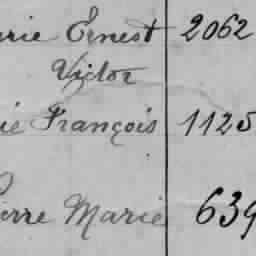 rie Ernest 2062
Victor
ie François 1125
Pierre Marie 639